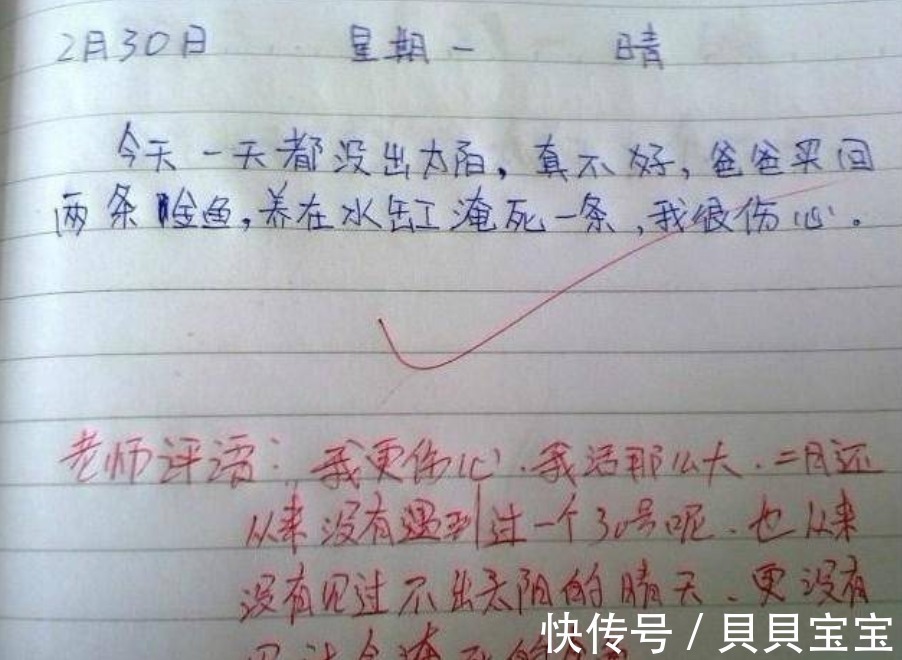 2月30日 星期一 晴
今天一天都没出太阳，真不好，爸爸买回
两条金鱼，养在水缸淹死一条，我很伤心。
老师评语：我更伤心．我活那么大．二月还
从来没有遇到过一个30号呢．也从来
没有见过不出太阳的晴天．更没有
见过会淹死的
快传号 / 貝貝宝宝